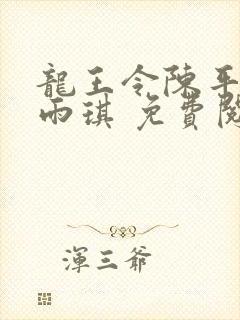 龍王令陳平
雨琪 免費閱
渾三爺